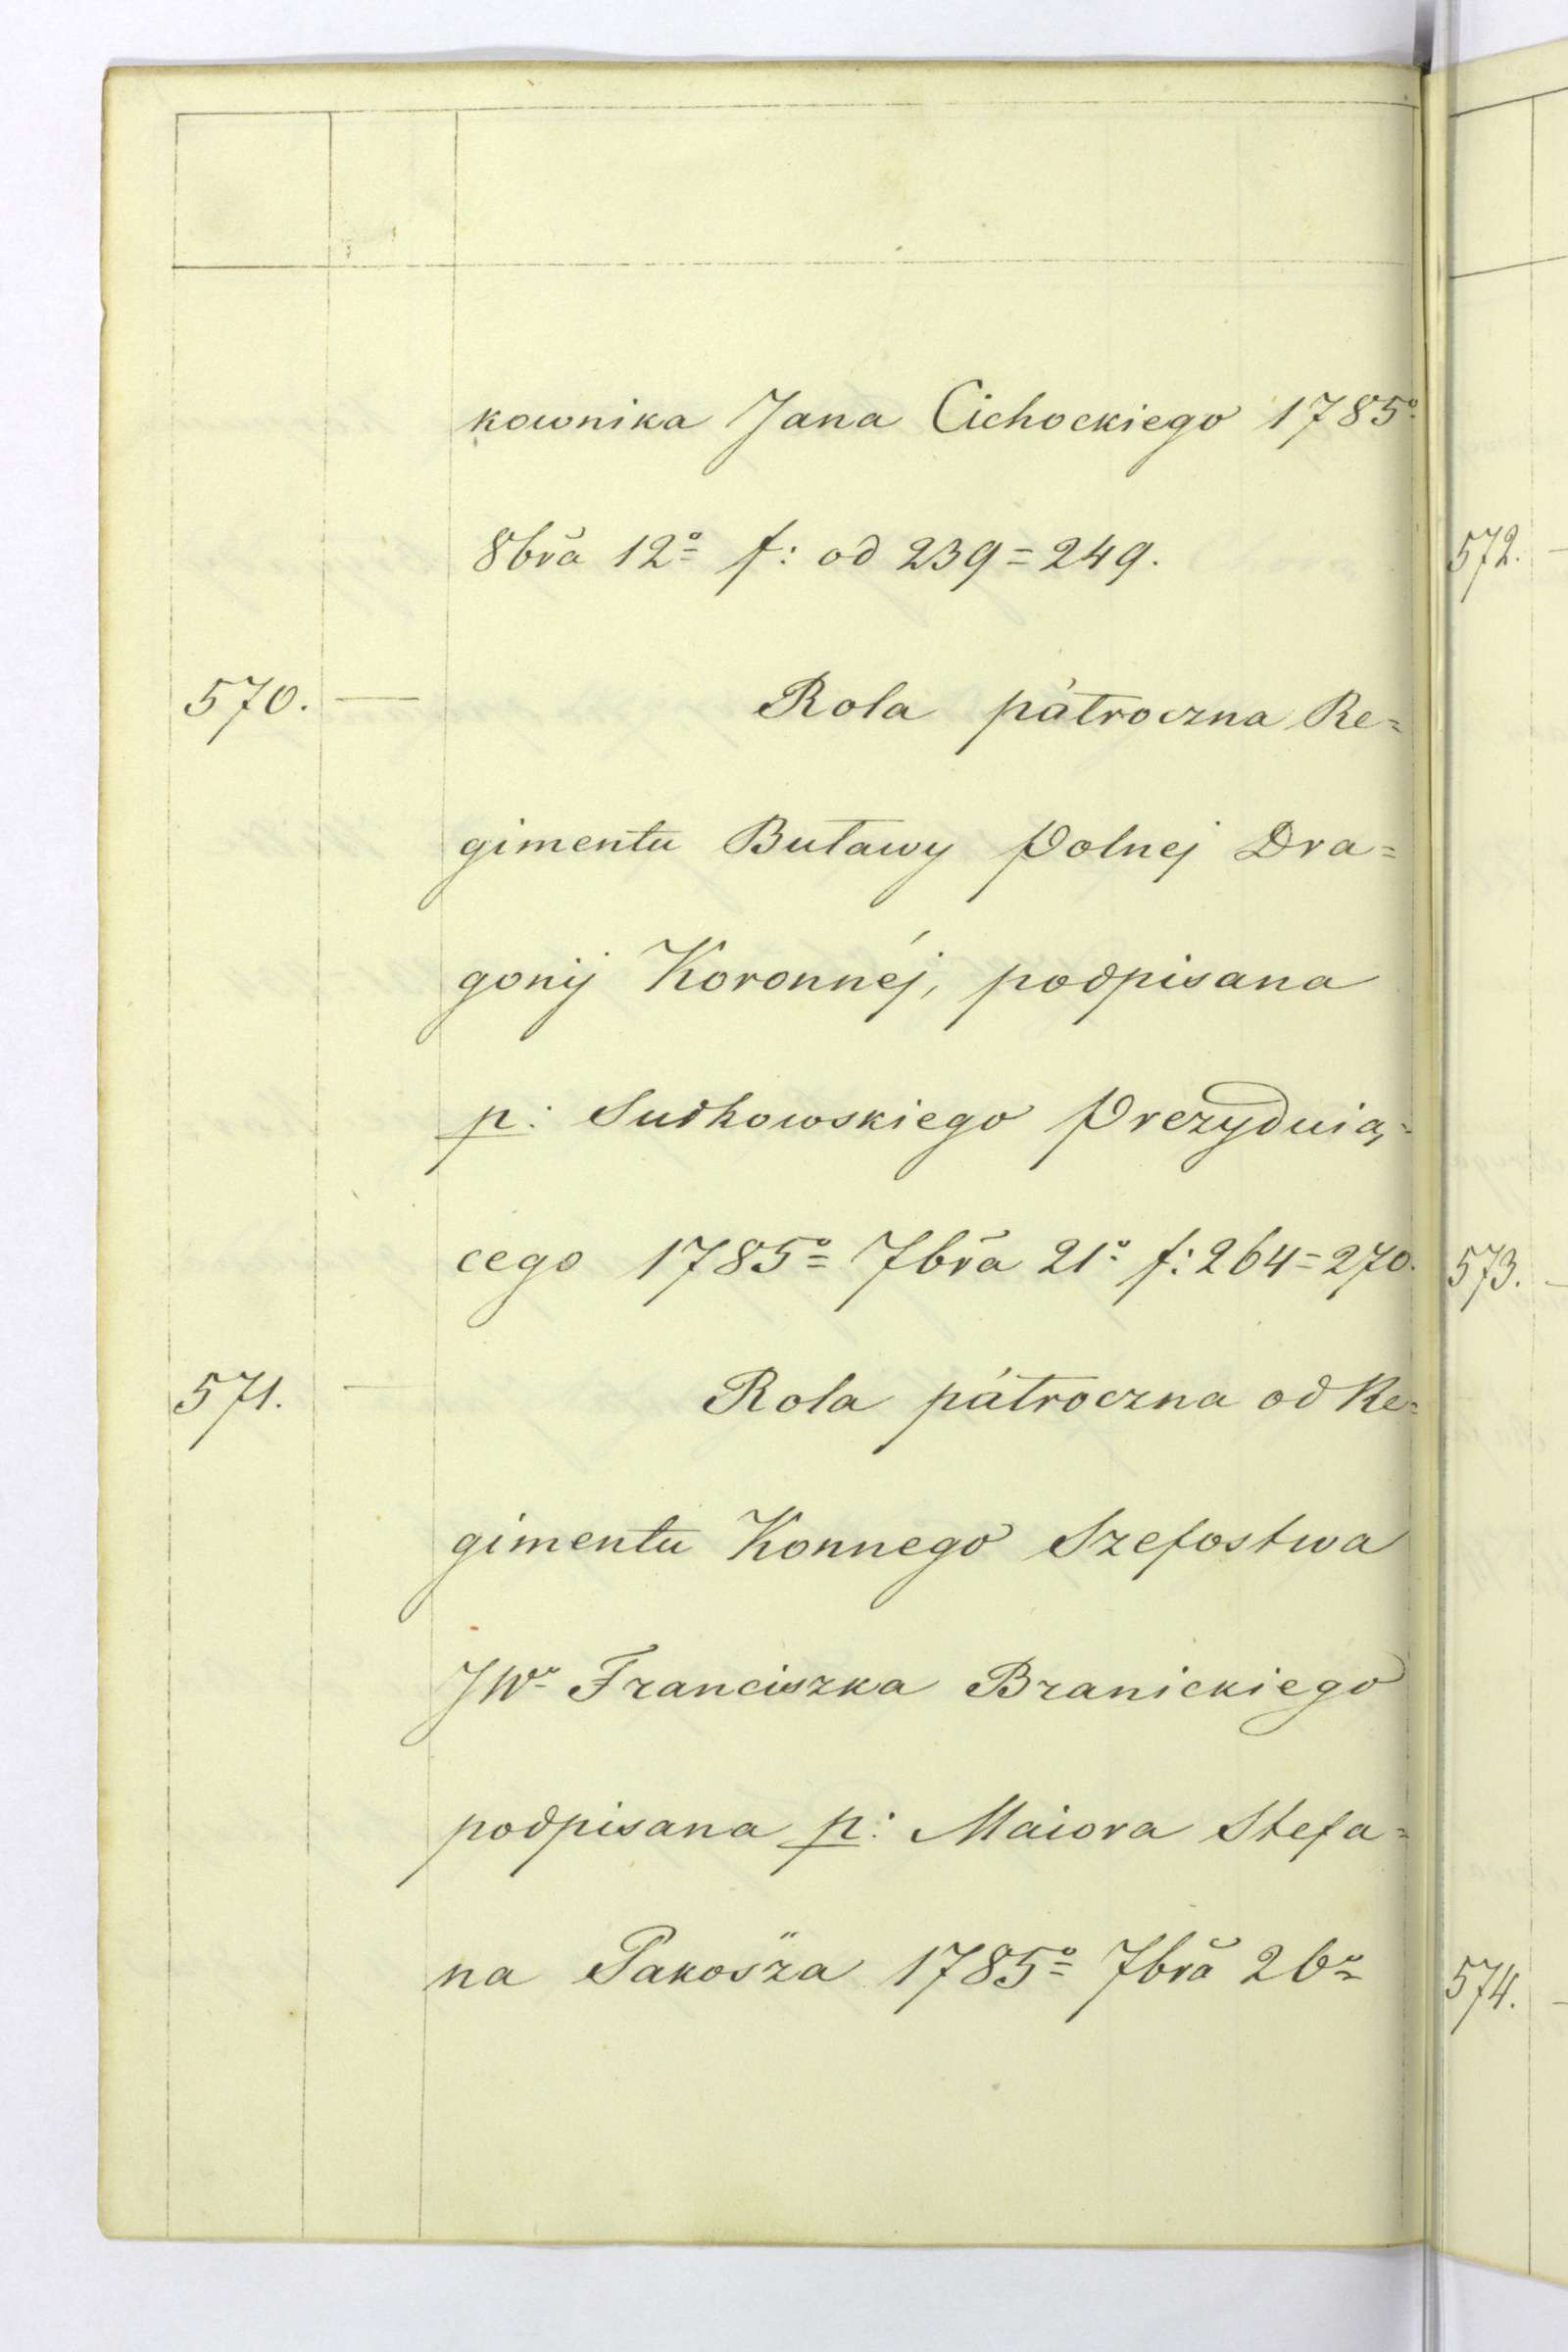 kownika Jana Cichockiego 1785º
8brã 12º f: od 239=249.
570. — Rola pátroczna Re=
gimentu Buławy Polnej Dra=
gonij Koronnéj, podpisana
p: Sudhowskiego Prezyduią=
cego 1785º 7brã 21º f: 264=270.
571. — Rola pátroczna od Re=
gimentu Konnego Szefostwa
JWº Franciszka Branickiego
podpisana p: Maiora Stefa=
na 1785º 7brã 26º
572.
573.
574.